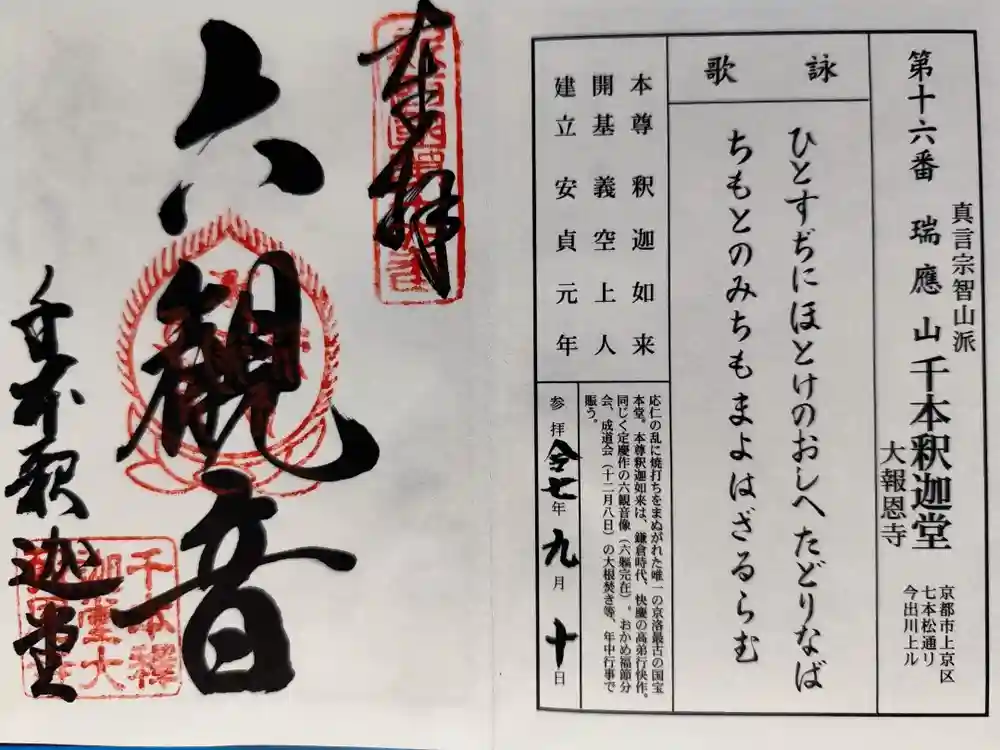 第十六番 瑞應山千本釈迦堂
真言宗智山派
大報恩寺
京都市上京区
七本松通リ
今出川上ル
詠歌
ひとすぢにほとけのおしへたどりなば
ちもとのみちもまよはざるらむ
本尊 釈迦如来
開基 義空上人
建立 安貞元年
応仁の乱に焼打ちをまぬがれた唯一の京洛最古の国宝
本堂。本尊釈迦如来は、鎌倉時代、快慶の高弟行快作。
同じく定慶作の六観音像（六軀完在）。おかめ福節分
会、成道会（十二月八日）の大根焚き等、年中行事で
賑う。
参拝 令七年 九月 十日
奉拝
六観音
千本釈迦堂
千本釋
迦堂大